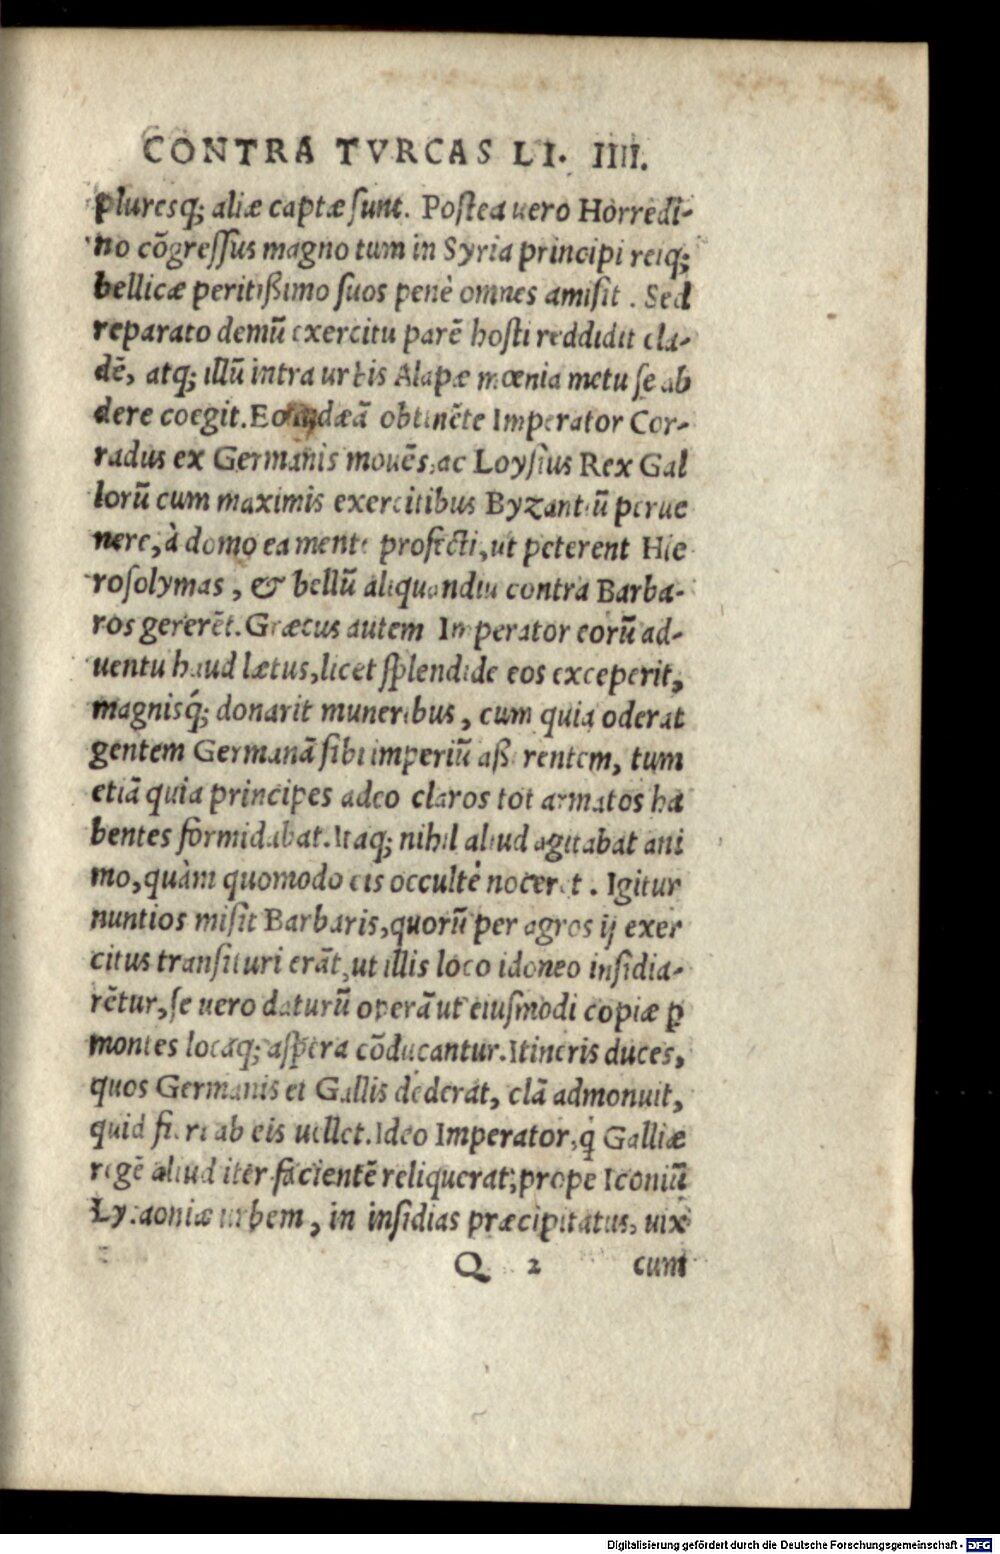 CONTRA TVRCAS LI. IIII.
pluresq; aliæ captæ sunt. Postea uero Horredi-
no cõgressus magno tum in Syria principi reiq;
bellicæ peritißimo suos penè omnes amisit. Sed
reparato demũ exercitu parẽ hosti reddidit cla-
dẽ, atq; illũ intra urbis Alapæ mœnia metu se ab
dere coegit. Iudæã obtinẽte Imperator Cor-
radus ex Germanis mouẽs, ac Loysius Rex Gal
lorũ cum maximis exercitibus Byzantiũ perue
nere, à domo ea mente profecti, ut peterent Hie
rosolymas, & bellũ aliquandiu contra Barba-
ros gererẽt. Græcus autem Imperator eorũ ad-
uentu haud lætus, licet splendide eos exceperit,
magnisq́; donarit muneribus, cum quia oderat
gentem Germanã sibi imperiũ aßerentem, tum
etiã quia principes adeo claros tot armatos ha
bentes formidabat. Itaq; nihil aliud agitabat ani
mo, quàm quomodo eis occultè noceret. Igitur
nuntios misit Barbaris, quorũ per agros ij exer
citus transituri erãt, ut illis loco idoneo insidia-
rẽtur, se uero daturũ operã ut eiusmodi copiæ ꝑ
montes locaq; aspera cõducantur. Itineris duces,
quos Germanis et Gallis dederat, clã admonuit,
quid fieri ab eis uellet. Ideo Imperator, ꝗ Galliæ
regẽ aliud iter facientẽ reliquerat, prope Iconiũ
Lycaoniæ urbem, in insidias præcipitatus, uix
Q 2 cum
Digitalisierung gefördert durch die Deutsche Forschungsgemeinschaft - DFG